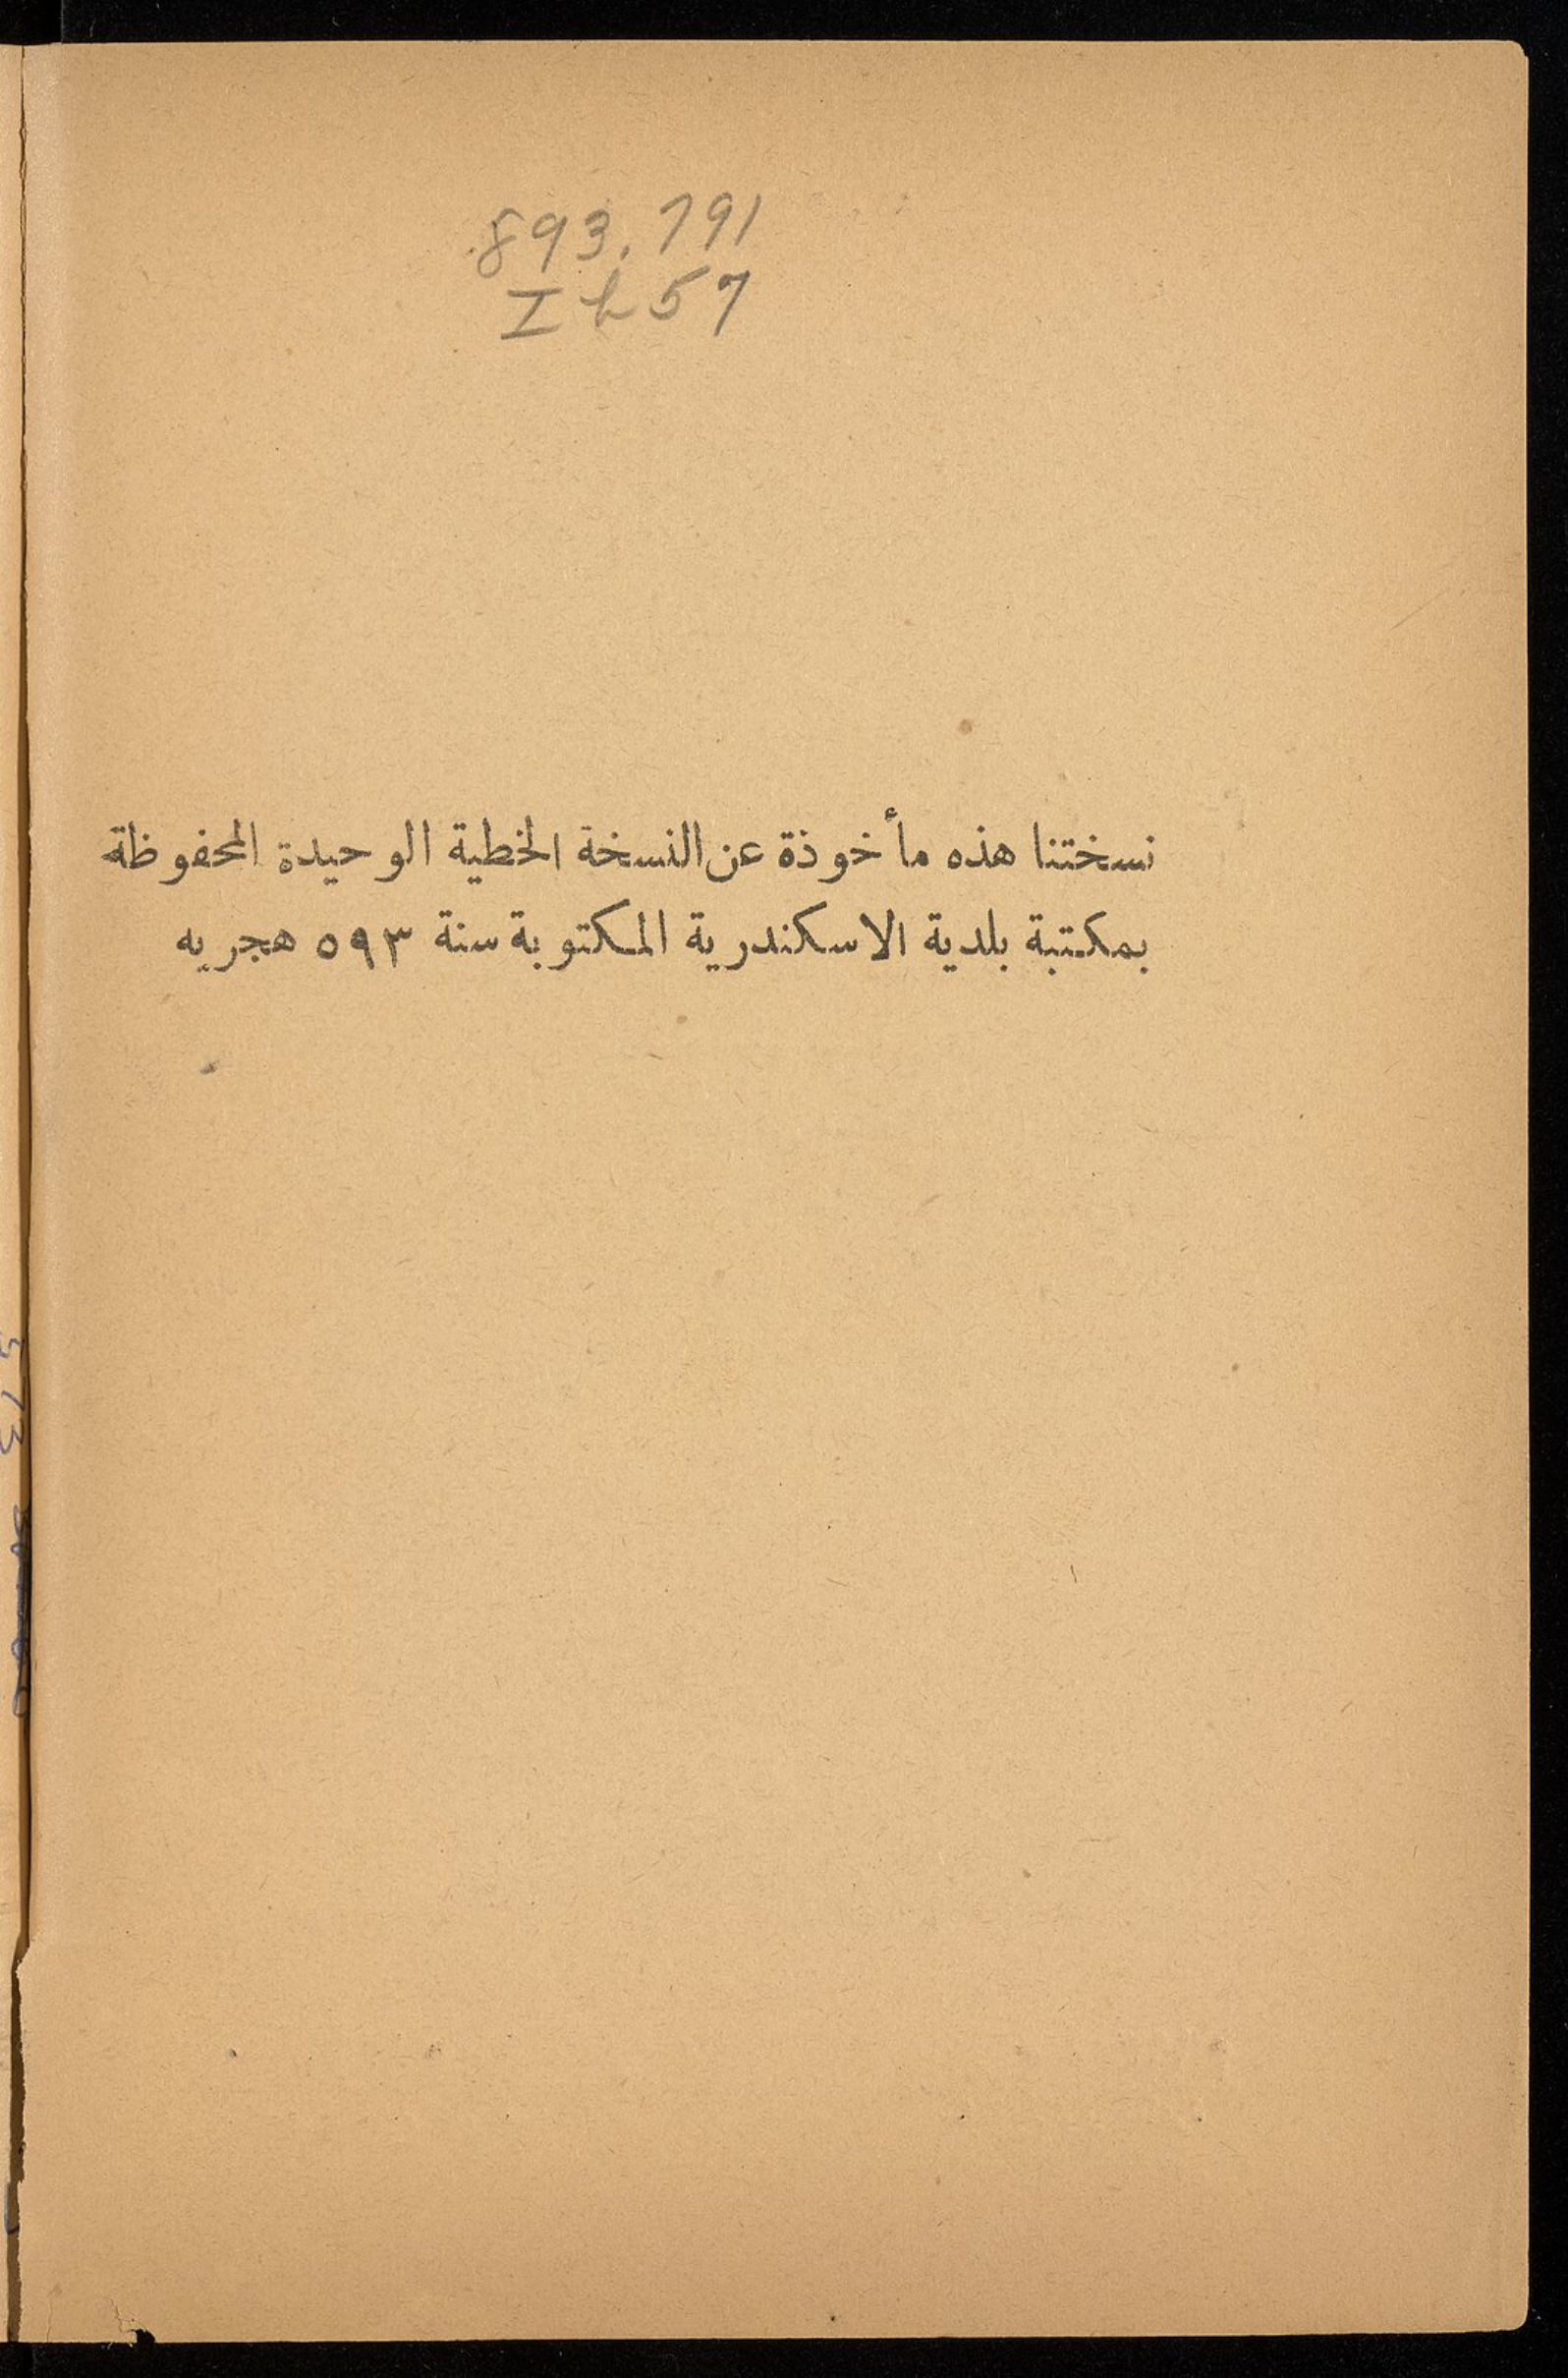 893.791
Ih57
نسختنا هذه مأخوذة عن النسخة الخطية الوحيدة المحفوظة
بمكتبة بلدية الاسكندرية المكتوبة سنة ٥٩٣ هجريه